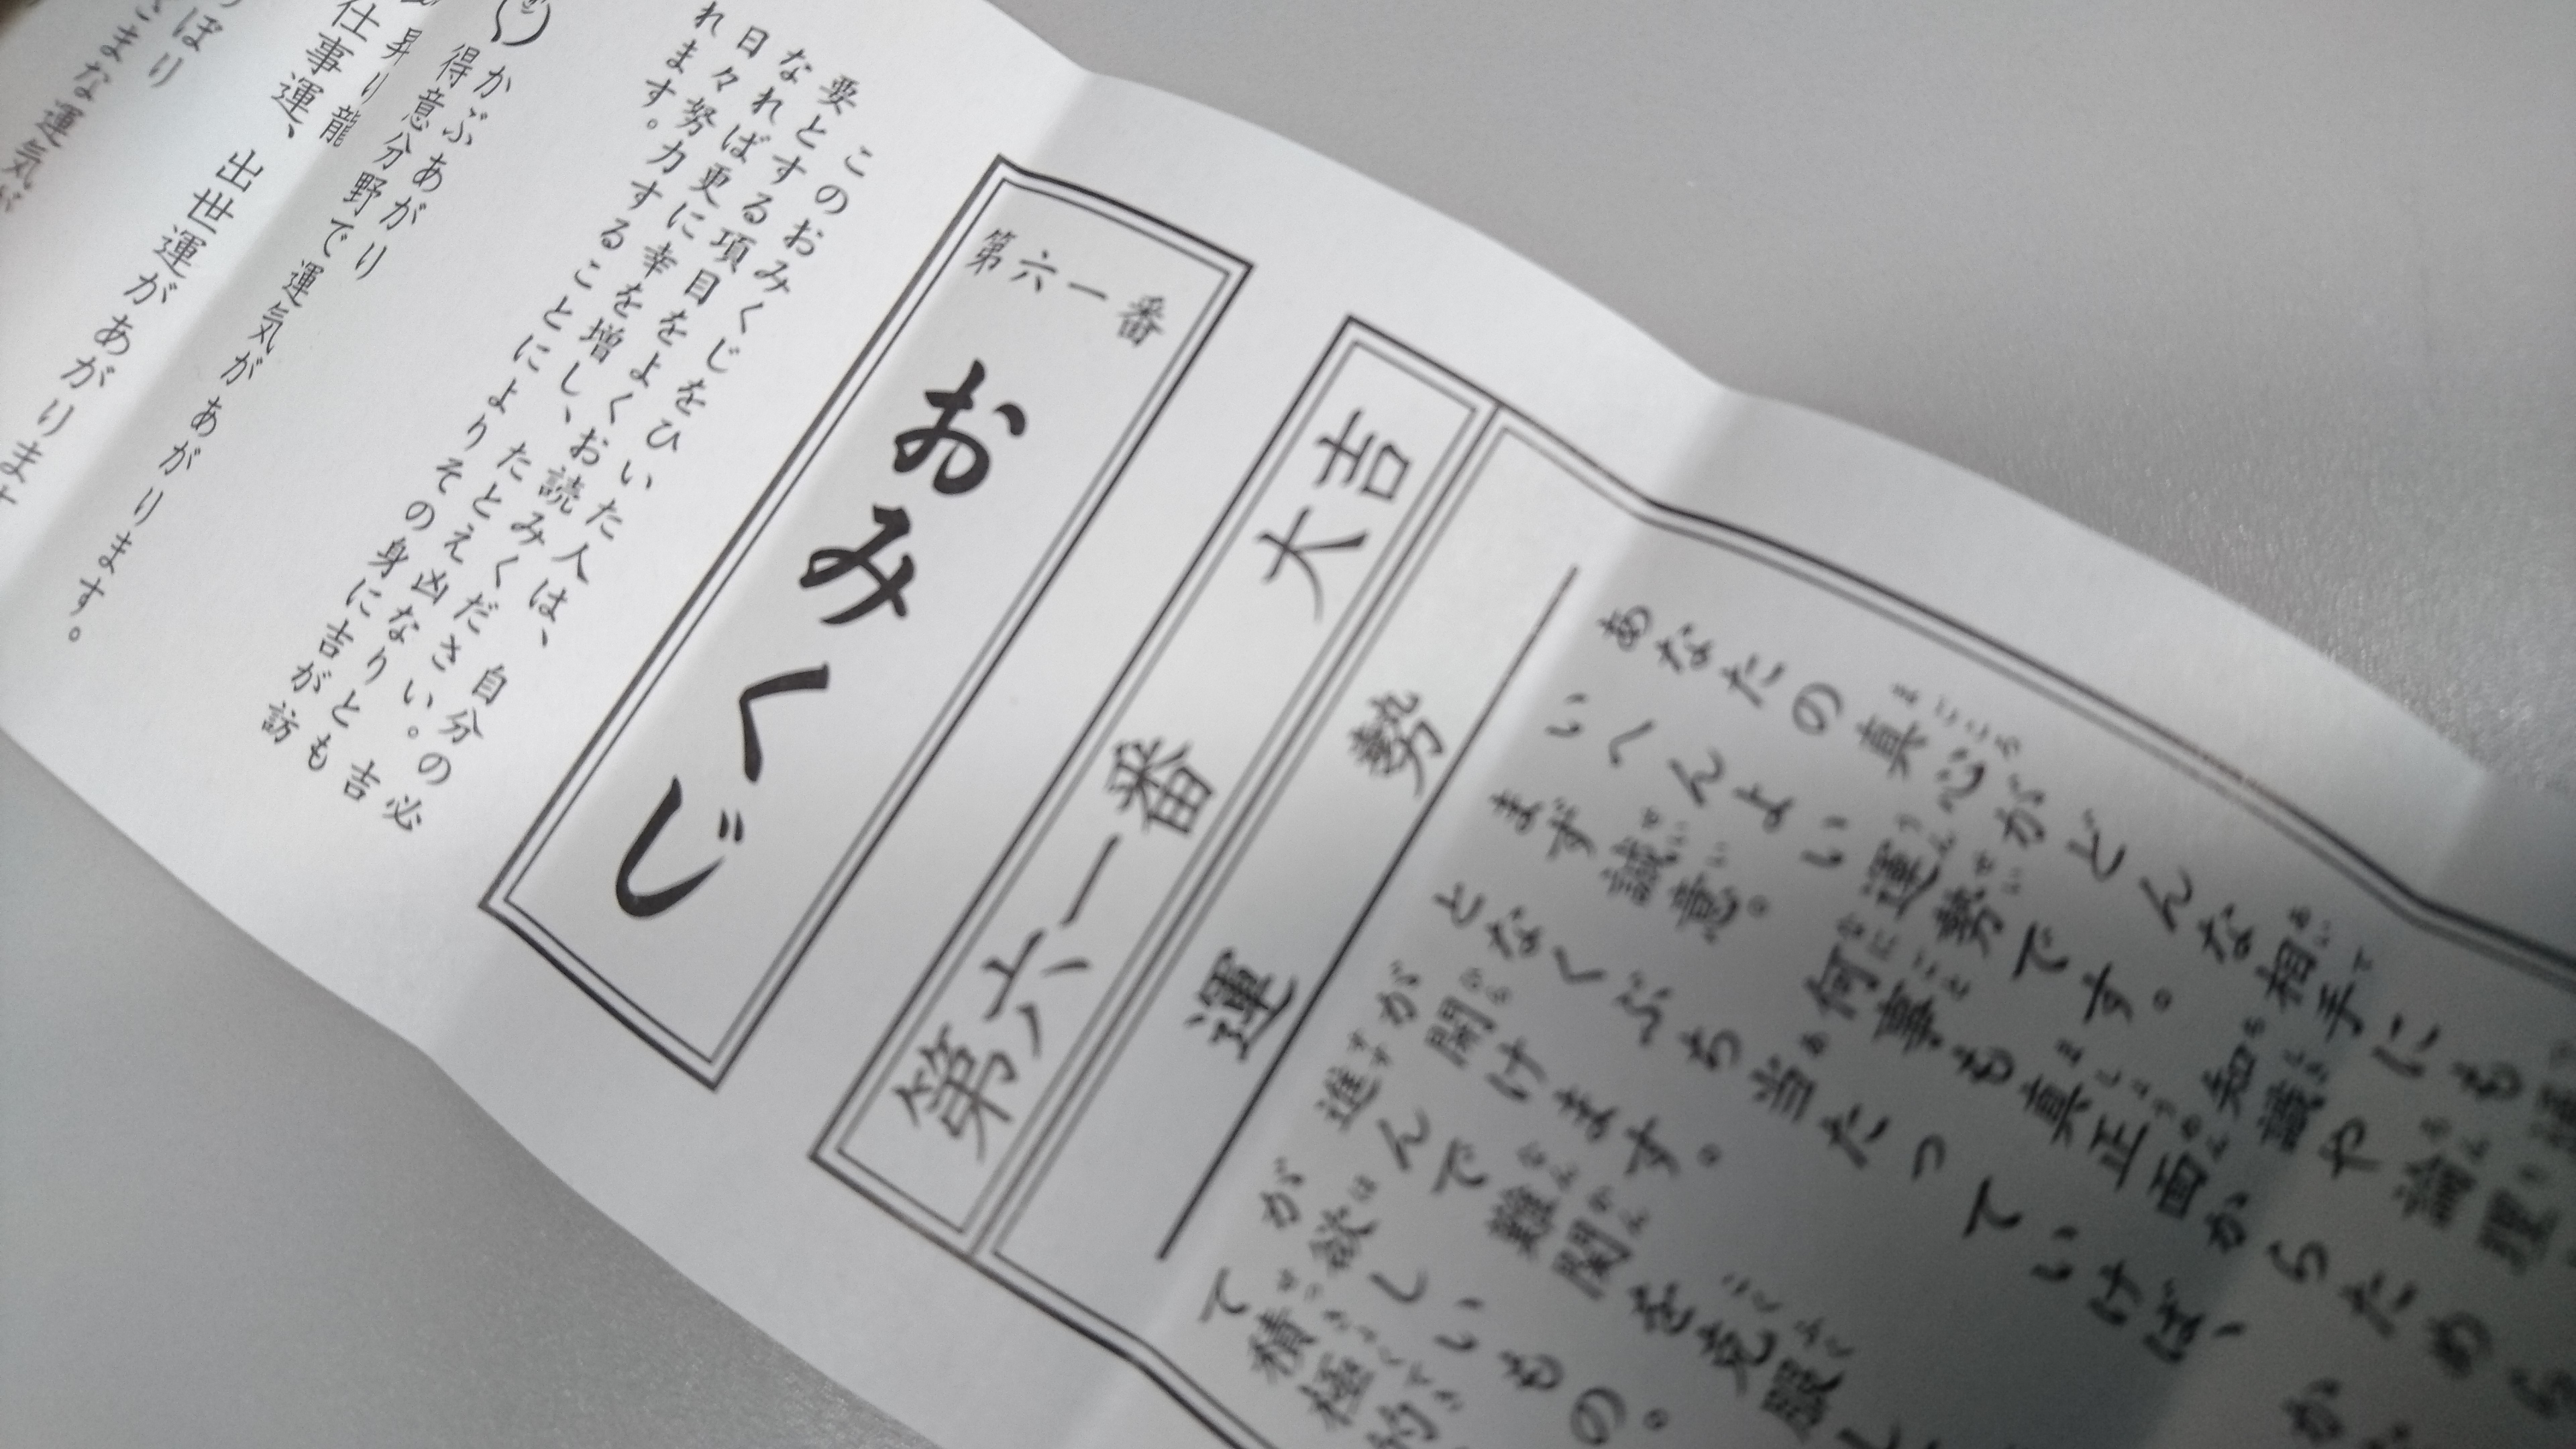 第六一番
おみくじ
このおみくじをひいた人は、自分の必
要とする項目をよくお読みください。吉
なれば更に幸を増し、たとえ凶なりとも
日々努力することによりその身に吉が訪
れます。
かぶあがり
得意分野で運気があがります。
昇り龍
仕事運、出世運があがります
ぼり
まな運気が
第六一番 大吉
運勢
あなたの真心がどんな相手にも
いへんよい運勢です。知識や論理
まず誠意。何事も真正面からためら
となくぶち当たっていけば、
が開けます。
進んで難関を克服
が欲しいもの。
て積極的